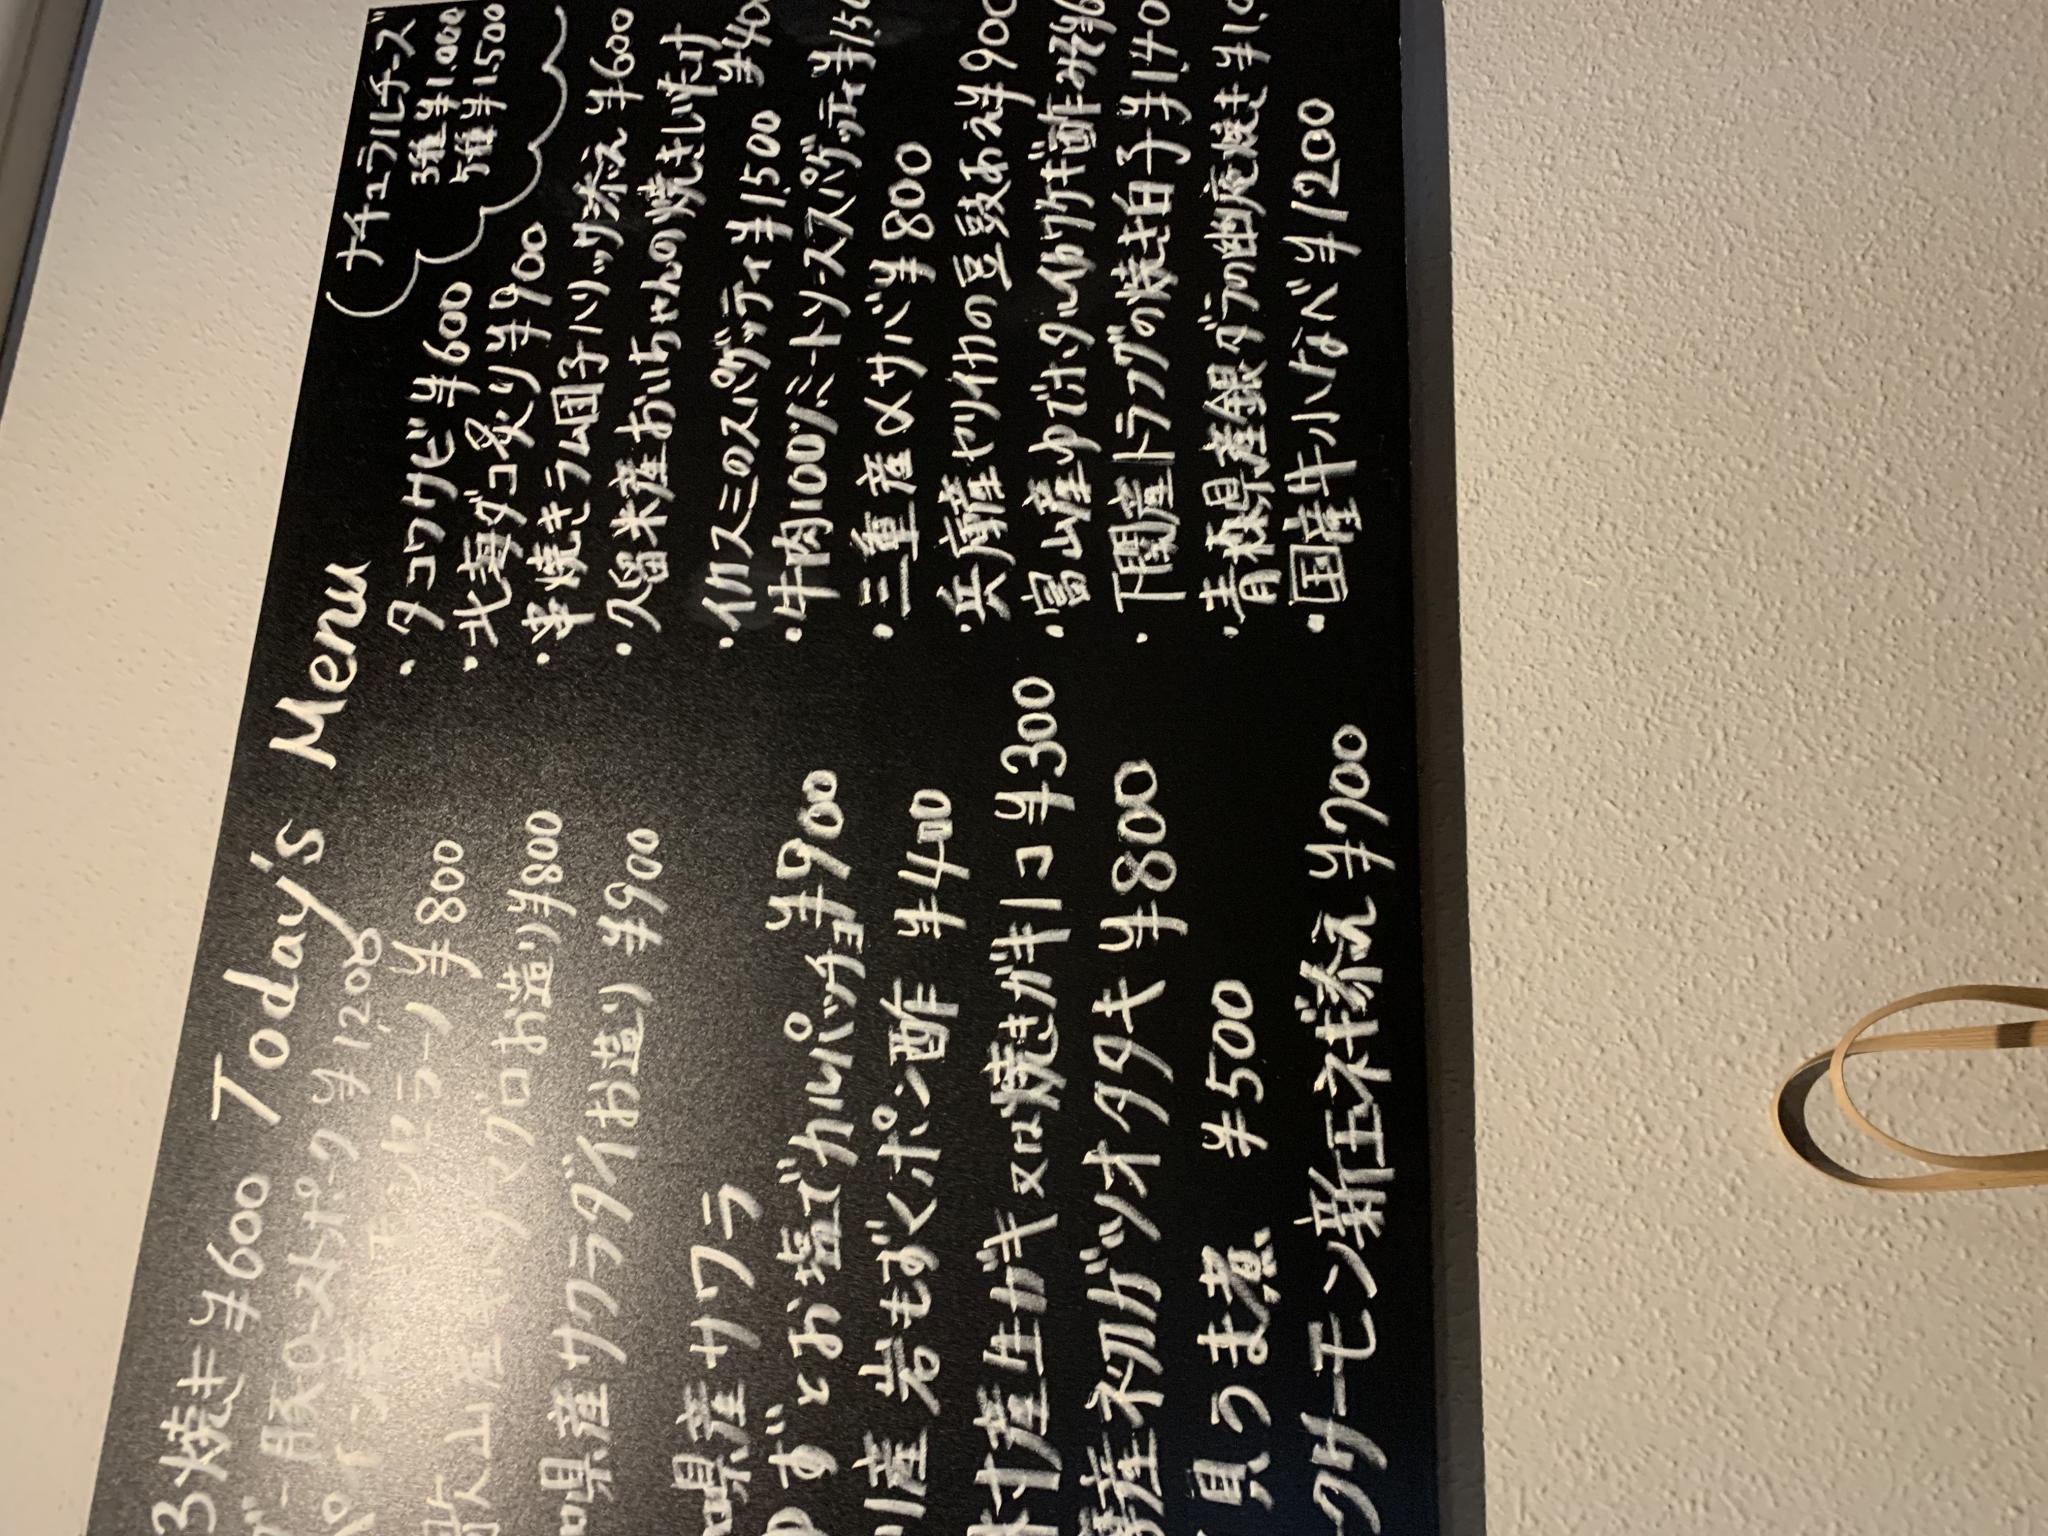 Today's Menu
3焼き ¥600
豚ロースポーク ¥1,200
ラーノ ¥800
山産 マグロお造り ¥800
県産サクラダイお造り ¥900
県産サワラ
ゆずとお塩でカルパッチョ ¥900
川産 岩もずくポン酢 ¥400
産生ガキ又は焼きガキ1コ ¥300
産初ガツオタタキ ¥800
貝うま煮 ¥500
クサーモン新玉ネギ添え ¥700
ナチュラルチーズ
3種 ¥1.000
5種 ¥1.500
・タコワサビ ¥600
・北海ダコ炙り ¥900
・串焼きラム団子パリック添え ¥600
・久留米産おいちゃんの焼きしいたけ
¥400
・イカスミのスパゲッティ ¥1,500
・牛肉100%ミートソーススパゲッティ ¥1,5
・三重産〆サバ ¥800
・兵庫産ヤリイカの豆豉あえ ¥900
・富山産ゆでホタルイカワケギ酢みそ
・下関産トラフグの焼き白子 ¥1,40
・青森県産銀ダラの幽庵焼き ¥1,
・国産牛小なべ ¥1200